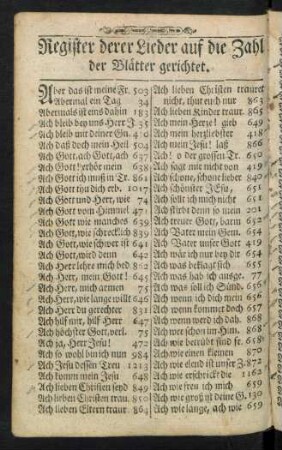 Register derer Lieder auf die Zahl
der Blätter gerichtet.
Aber das ist meine Fr. 503
Abermal ein Tag 34
Abermals ist eins dahin 183
Ach bleib bey uns Herr J. 33
Ach bleib mit deiner Gn. 410
Ach daß doch mein Heil 504
Ach Gott, ach Gott, ach 637
Ach Gott! erhör mein 638
Ach Gott ich muß in Tr. 861
Ach Gott thu dich erb. 1017
Ach Gott und Herr, wie 74
Ach Gott vom Himmel 471
Ach Gott wie manches 639
Ach Gott, wie schrecklich 839
Ach Gott, wie schwer ist 641
Ach Gott, wird denn 642
Ach Herr lehre mich bed 862
Ach Herr, mein Gott! 645
Ach Herr, mich armen 75
Ach Herr, wie lange willt 646
Ach Herr du gerechter 831
Ach hilf mir, hilf Herr 647
Ach höchster Gott, verl. 75
Ach ja, Herr Jesu! 472
Ach wo wohl bin ich nun 984
Ach Jesu dessen Treu 1213
Ach komm mein Jesu 648
Ach lieben Christen seyd 849
Ach lieben Christen trau. 850
Ach lieben Eltern traur. 864
Ach lieben Christen trauret
nicht, thut euch nur 863
Ach lieben Kinder traur. 865
Ach mein Herze! gieb 649
Ach mein herzliebster 418
Ach mein Jesu! laß 866
Ach! o der grossen Tr. 650
Ach sagt mir nicht von 421
Ach schone, schone lieber 840
Ach schönster JEsu, 651
Ach sollt ich mich nicht 651
Ach stirbt denn so mein 201
Ach treuer Gott, barm 652
Ach Vater mein Gem. 653
Ach Vater unser Gott 419
Ach wär ich nur bey dir 654
Ach was beklagst sich 655
Ach was hab ich ausger. 77
Ach was soll ich Sünd. 656
Ach wenn ich dich mein 656
Ach wenn kommet doch 657
Ach wenn werd ich dah. 868
Ach wer schon im Him. 868
Ach wie betrübt sind fr. 658
Ach wie einen kleinen 870
Ach wie elend ist unser Z. 872
Ach wie erschrickt die 1163
Ach wie freu ich mich 659
Ach wie groß ist deine G. 130
Ach wie lange, ach wie 659